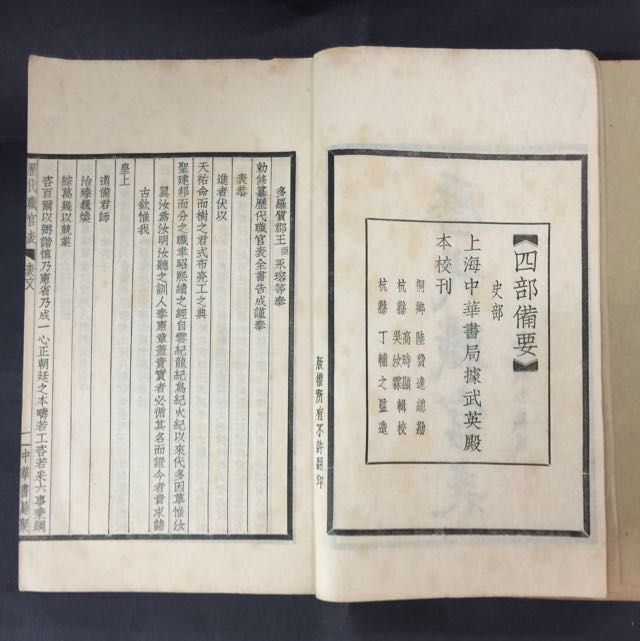 《四部備要》
史部
上海中華書局據武英殿
本校刊
桐鄉 陸費逵 總勘
杭縣 高時顯 輯校
杭縣 吳汝霖
杭縣 丁輔之 監造
版權所有不許翻印
多羅質郡王臣永瑢等奉
勅修纂歷代職官表全書告成謹奉
表恭
進者伏以
天祐命而樹之君式布亮工之典
聖建邦而分之職聿昭熙績之經自雲紀龍紀鳥紀火紀以來代多因革惟汝
翼汝為汝明汝聽之訓人奉憲章蓋責實者必循其名而證今者貴求諸
古欽惟我
皇上
道備君師
治臻巍煥
綜萬幾以兢業
咨百爾以弼諧慎乃憲省乃成一心正朝廷之本疇若工咨若采六事挈綱
歷代職官表 表文
一 中華書局聚